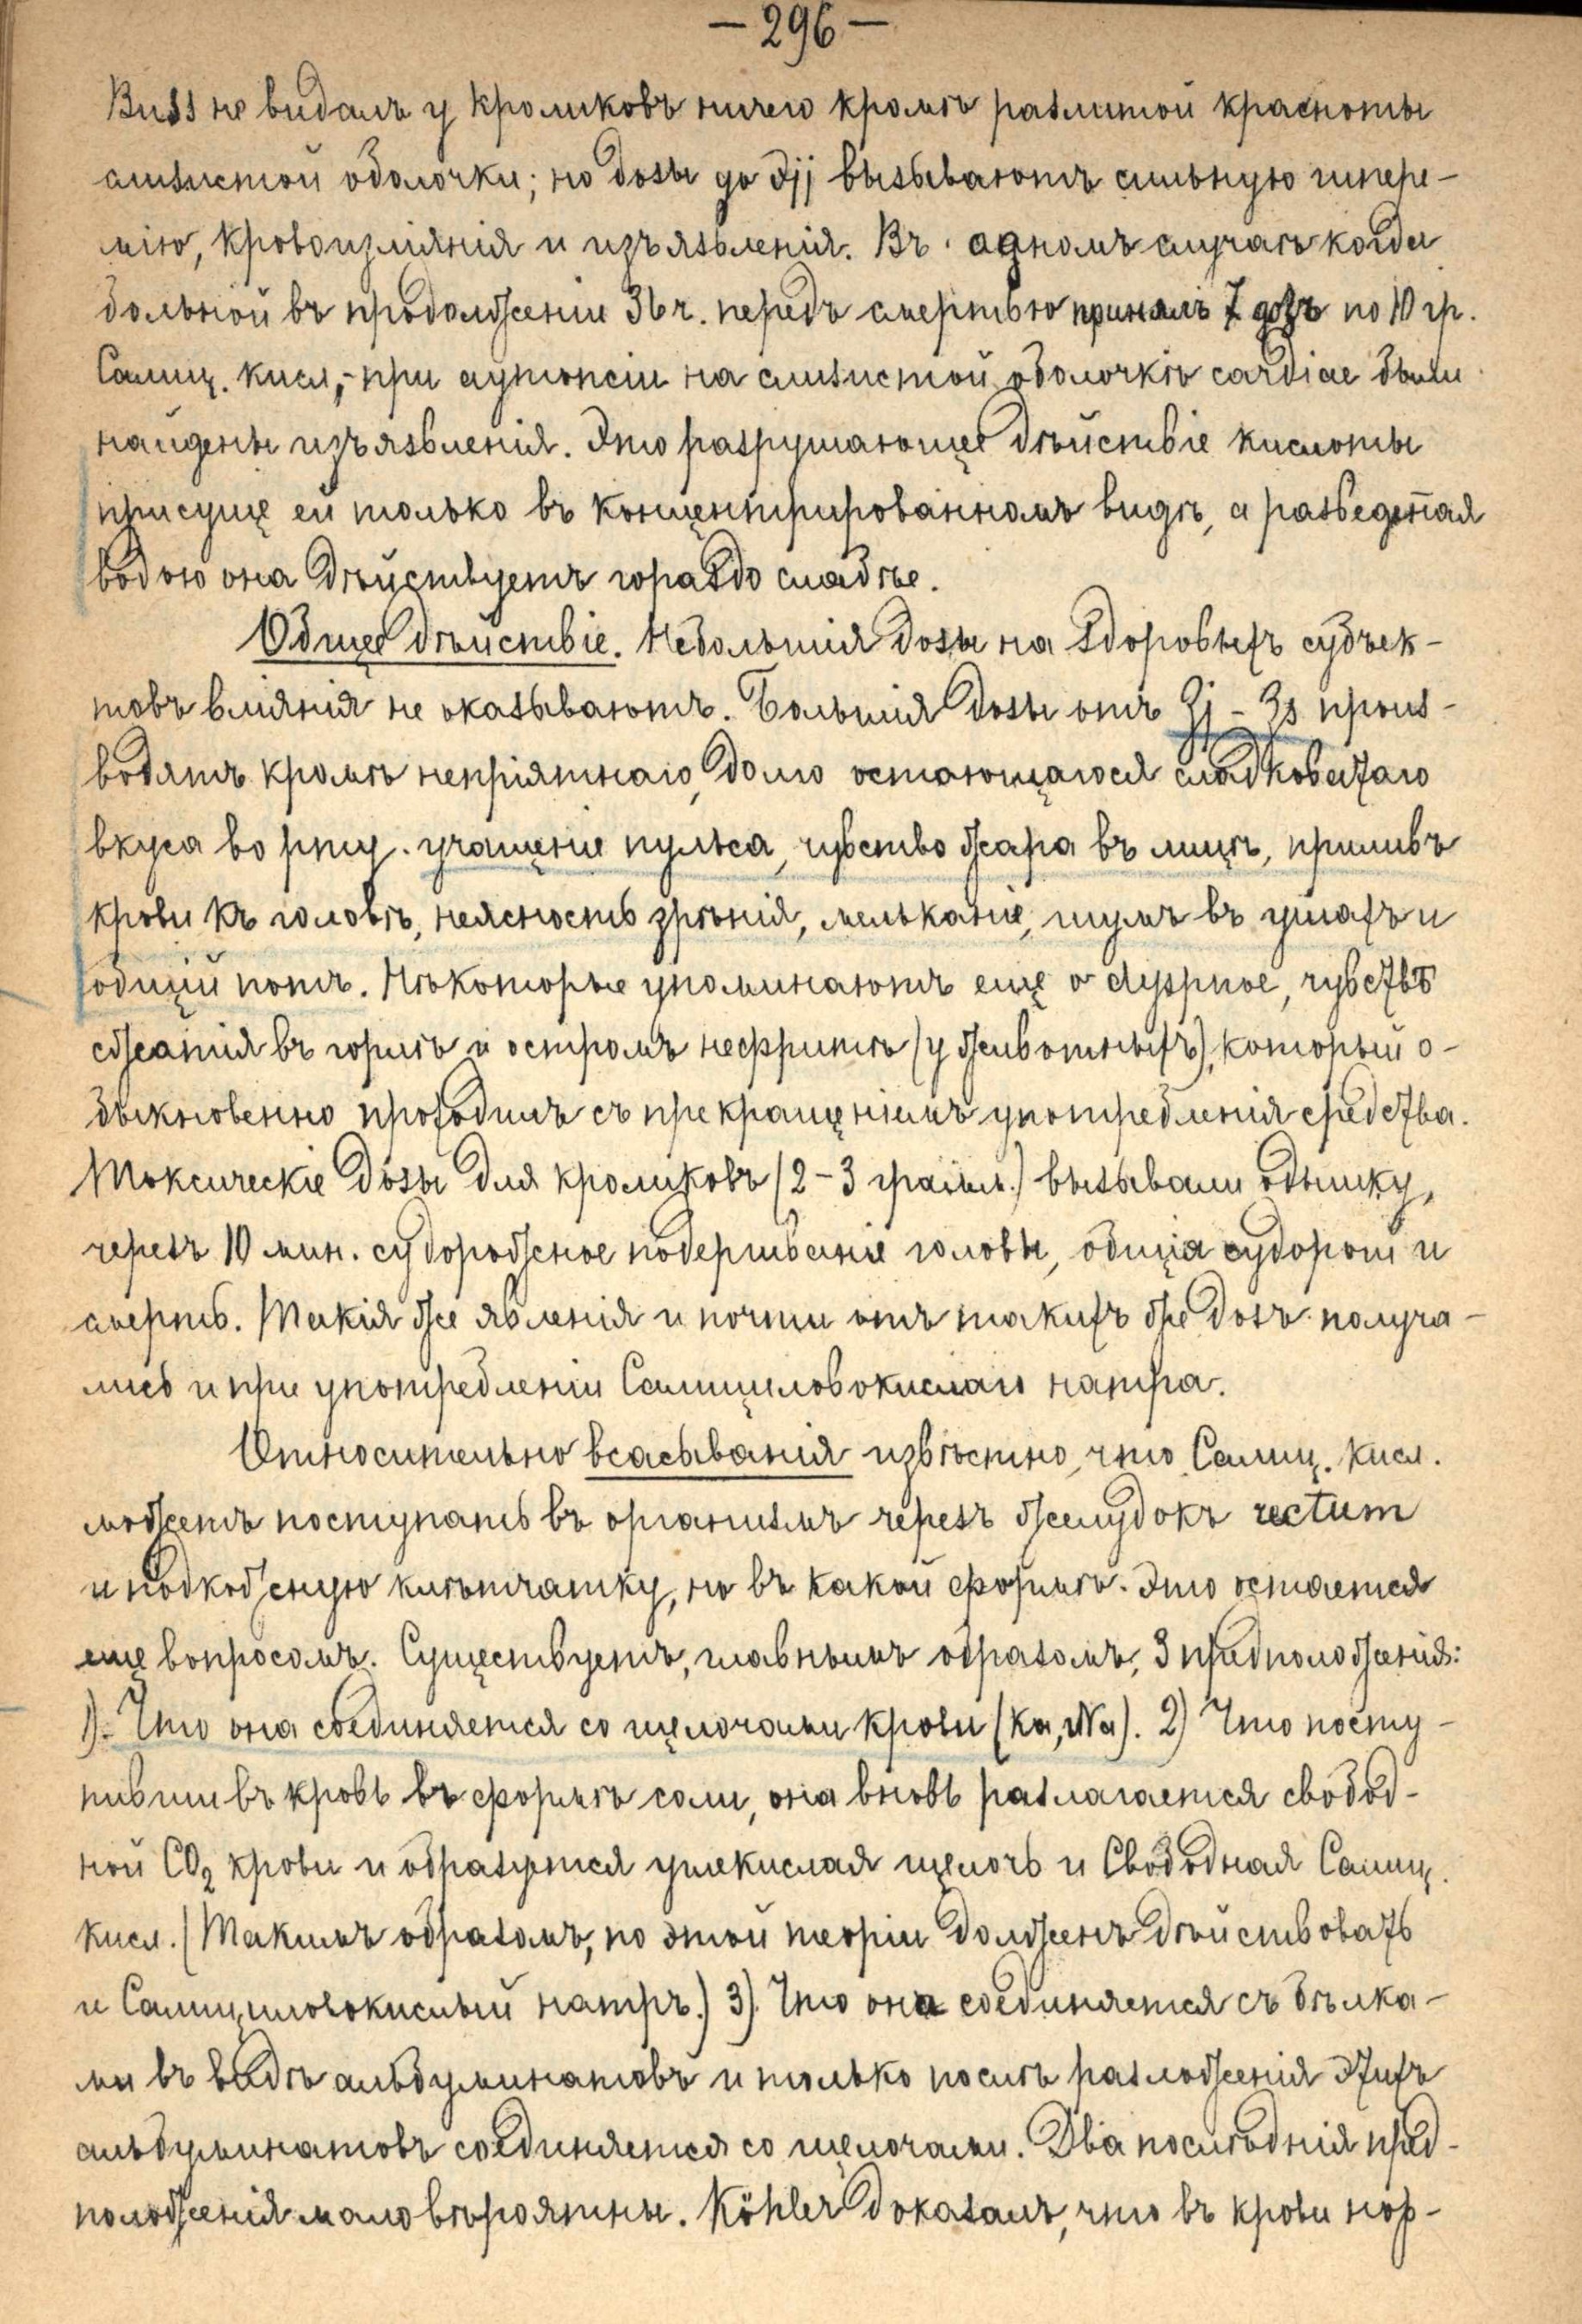 — 296 —
Buss не видалъ у кроликовъ ничего кромѣ разлитой красноты
слизистой оболочки; но дозы до Ʒjj вызываютъ сильную гипере-
мію, кровоизліянія и изъязвленія. Въ одномъ случаѣ когда
больной въ продолженіи 36 ч. передъ смертью принялъ 7 дозъ по 10 гр.
Салиц. кисл., – при аутопсіи на слизистой оболочкѣ cardiae были
найдены изъязвленія. Это разрушающее дѣйствіе кислоты
присуще ей только въ концентрированномъ видѣ, а разведеная
водою она дѣйствуетъ гораздо слабѣе.
Общее дѣйствіе. Небольшія дозы на здоровыхъ субъек-
товъ вліянія не оказываютъ. Большія дозы отъ Ʒj – Ʒs произ-
водятъ кромѣ непріятнаго, долго остающагося сладковатаго
вкуса во рту. учащеніе пульса, чувство жара въ лицѣ, приливъ
крови къ головѣ, неясность зрѣнія, мельканіе, шумъ въ ушахъ и
общій потъ. Нѣкоторые упоминаютъ еще о dyspnoe, чувствѣ
сжатія въ горлѣ и остромъ нефритѣ (у животныхъ), который о-
быкновенно проходитъ съ прекращеніемъ употребленія средства.
Токсическіе дозы для кроликовъ (2–3 грамм.) вызывали одышку,
черезъ 10 мин. судорожное подергиваніе головы, общія судороги и
смерть. Такія же явленія и почти отъ такихъ же дозъ получа-
лись и при употребленіи Салициловокислаго натра.
Относительно всасыванія извѣстно, что Салиц. кисл.
можетъ поступать въ организмъ черезъ желудокъ rectum
и подкожную клѣтчатку, но въ какой формѣ. Это остается
еще вопросомъ. Существуетъ, главнымъ образомъ, 3 предположенія:
1). Что она соединяется со щелочами крови (Ka, Na). 2) Что посту-
пивши въ кровь въ формѣ соли, она вновь разлагается свобод-
ной CO₂ крови и образуется углекислая щелочь и Свободная Салиц.
кисл. (Такимъ образомъ, по этой теоріи долженъ дѣйствовать
и Салициловокислый натръ.) 3). Что она соединяется съ бѣлка-
ми въ видѣ альбуминатовъ и только послѣ разложенія этихъ
альбуминатовъ соединяется со щелочами. Два послѣднія пред-
положенія мало вѣроятны. Köhler доказалъ, что въ крови нор-